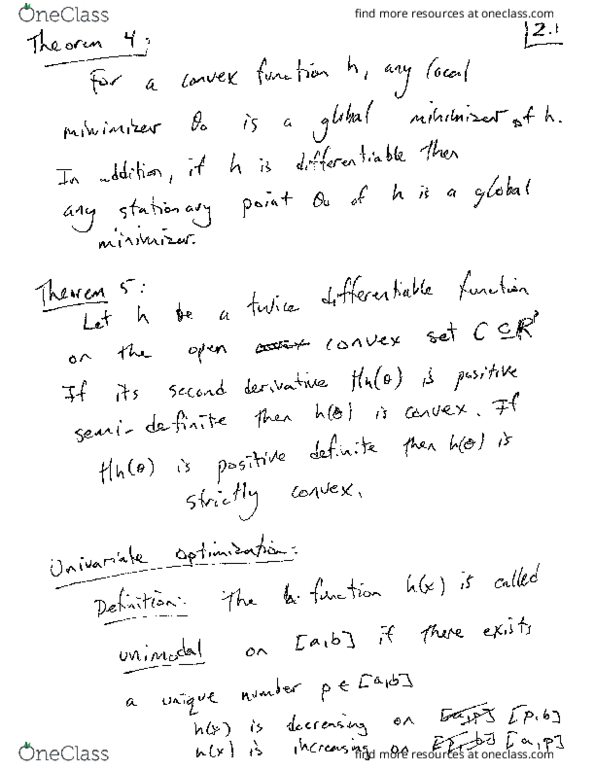 OneClass
find more resources at oneclass.com
2.1
Theorem 4:
For a convex function h, any local
minimizer θ₀ is a global minimizer of h.
In addition, if h is differentiable then
any stationary point θ₀ of h is a global
minimizer.
Theorem 5:
Let h be a twice differentiable function
on the open convex set C ⊆ ℝ
If its second derivative Hh(θ) is positive
semi-definite then h(θ) is convex. If
Hh(θ) is positive definite then h(θ) is
strictly convex.
Univariate optimization:
Definition: The function h(x) is called
unimodal on [a,b] if there exists
a unique number p ∈ [a,b]
h(x) is decreasing on [a,p] [p,b]
h(x) is increasing on [p,b] [a,p]
OneClass
find more resources at oneclass.com